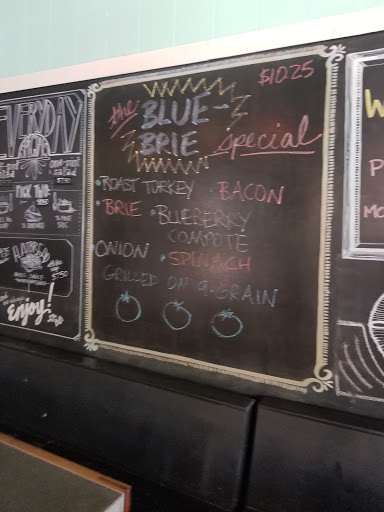 EVERYDAY
PICK TWO
Enjoy!
$10.25
the BLUE-
BRIE Special
• ROAST TURKEY • BACON
• BRIE • BLUEBERRY
COMPOTE
• ONION • SPINACH
GRILLED ON 9-GRAIN